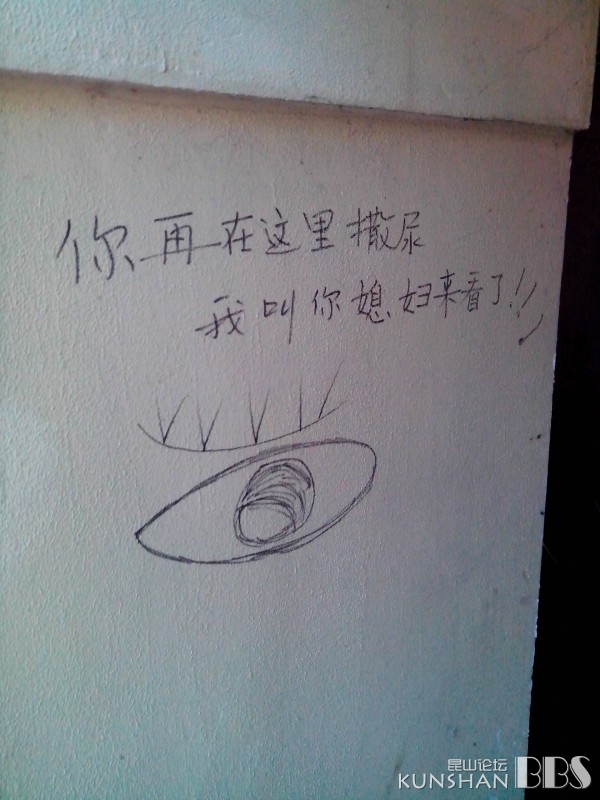 你再在这里撒尿
我叫你媳妇来看了!!
昆山论坛
KUNSHAN BBS